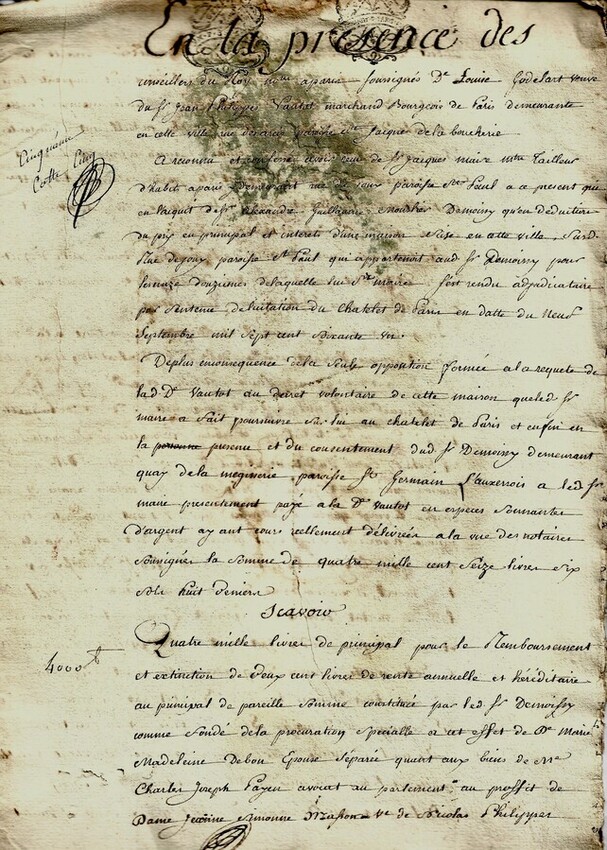 En la presence des
conseillers du Roy nors a paris soussignés De Louise Godelart veuve
du Sr Jean Philippe Vautot marchand Bourgeois de Paris demeurante
en cette ville rue paroisse St Jacques de la boucherie
Cinquieme
Cotte Cinq
A reconnu et confessé avoir reçu de Sr Jacques maire mtre Tailleur
d'habits a paris Demeurant rue de Jouy paroisse St Paul a ce present qui
en l'acquit de Sr Alexandre Guillaume Demoissy qu'en deduction
du prix en principal et interets d'une maison sise en cette ville susd.
Rue de Jouy paroisse St Paul qui appartenoit aud Sr Demoissy pour
douziemes de laquelle led Sr maire s'est rendu adjudicataire
par sentence de licitation du Chatelet de Paris en datte du Neuf
Septembre mil sept cent soixante un.
Deplus en consequence de la seule opposition formée a la requete de
lad. De Vautot au decret volontaire de cette maison que led Sr
maire a fait poursuivre sur lui au chatelet de Paris et enfin en
la personne presence et du consentement dud. Sr Demoissy demeurant
quay de la megisserie paroisse St Germain L'auxerrois a led Sr
maire presentement payé a lad De Vautot en especes sonnantes
d'argent ayant cours reellement délivrées a la vue des notaires
soussignés la somme de quatre mille cent seize livres six
sols huit deniers
Scavoir
4000 ₶
Quatre mille livres de principal pour le Remboursement
et extinction de deux cent livres de rente annuelle et héréditaire
au principal de pareille somme constituée par led. Sr Demoissy
comme fondé de la procuration specialle a cet effet de De Marie
Madeleine Debon Epouse séparée quant aux biens de Me
Charles Joseph Payen avocat au parlement au proffit de
Dame Jeanne Simonne Masson ve de Nicolas Philippes